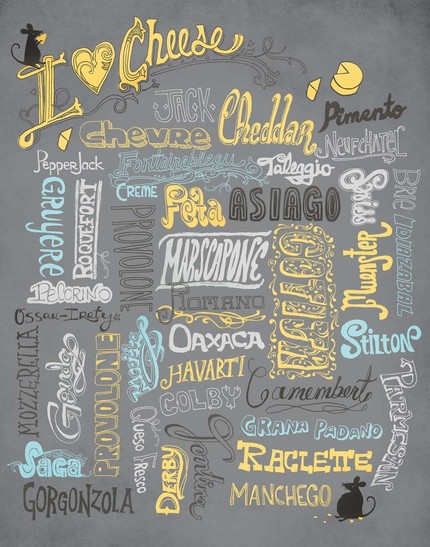 I ♥ Cheese
JACK
Cheddar
Pimento
Chevre
Neufchatel
PepperJack
Fontainebleau
Taleggio
Swiss
BRIE
IDIAZABAL
GRUYERE
ROQUEFORT
CREME
PROVOLONE
Feta
ASIAGO
MARSCAPONE
Muenster
Pecorino
ROMANO
Ossau-Iraty
OAXACA
Stilton
MOZZERELLA
Gouda
PROVOLONE
HAVARTI
COLBY
Camembert
PARMESAN
Queso Fresco
GRANA PADANO
Saga
DERBY
Fontina
RACLETTE
GORGONZOLA
MANCHEGO